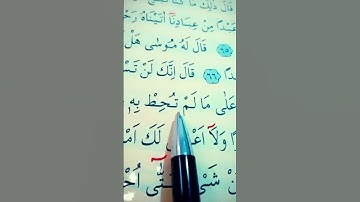 قَالَ ذٰلِكَ مَا كُنَّا
عَبْدًا مِنْ عِبَادِنَٓا اٰتَيْنَاهُ رَحْ
﴿٦٥﴾ قَالَ لَهُ مُوسٰى هَلْ
دًا ﴿٦٦﴾ قَالَ اِنَّكَ لَنْ تَسْ
عَلٰى مَا لَمْ تُحِطْ بِهِ
ًا وَلَٓا اَعْ لَكَ اَمْ
نْ شَيْ تّٰٓى اُحْ